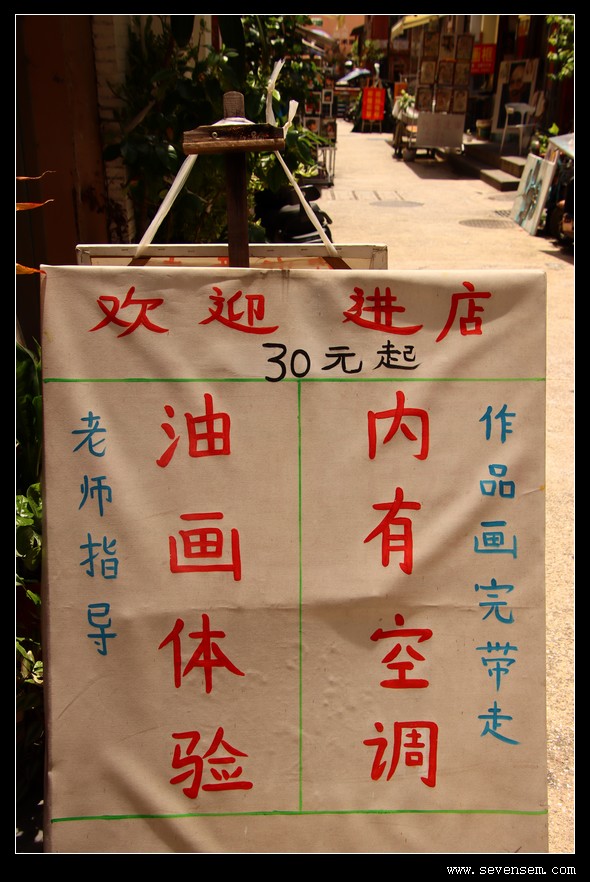 欢迎进店
30元起
老师指导
油画体验
内有空调
作品画完带走
www.sevensem.com